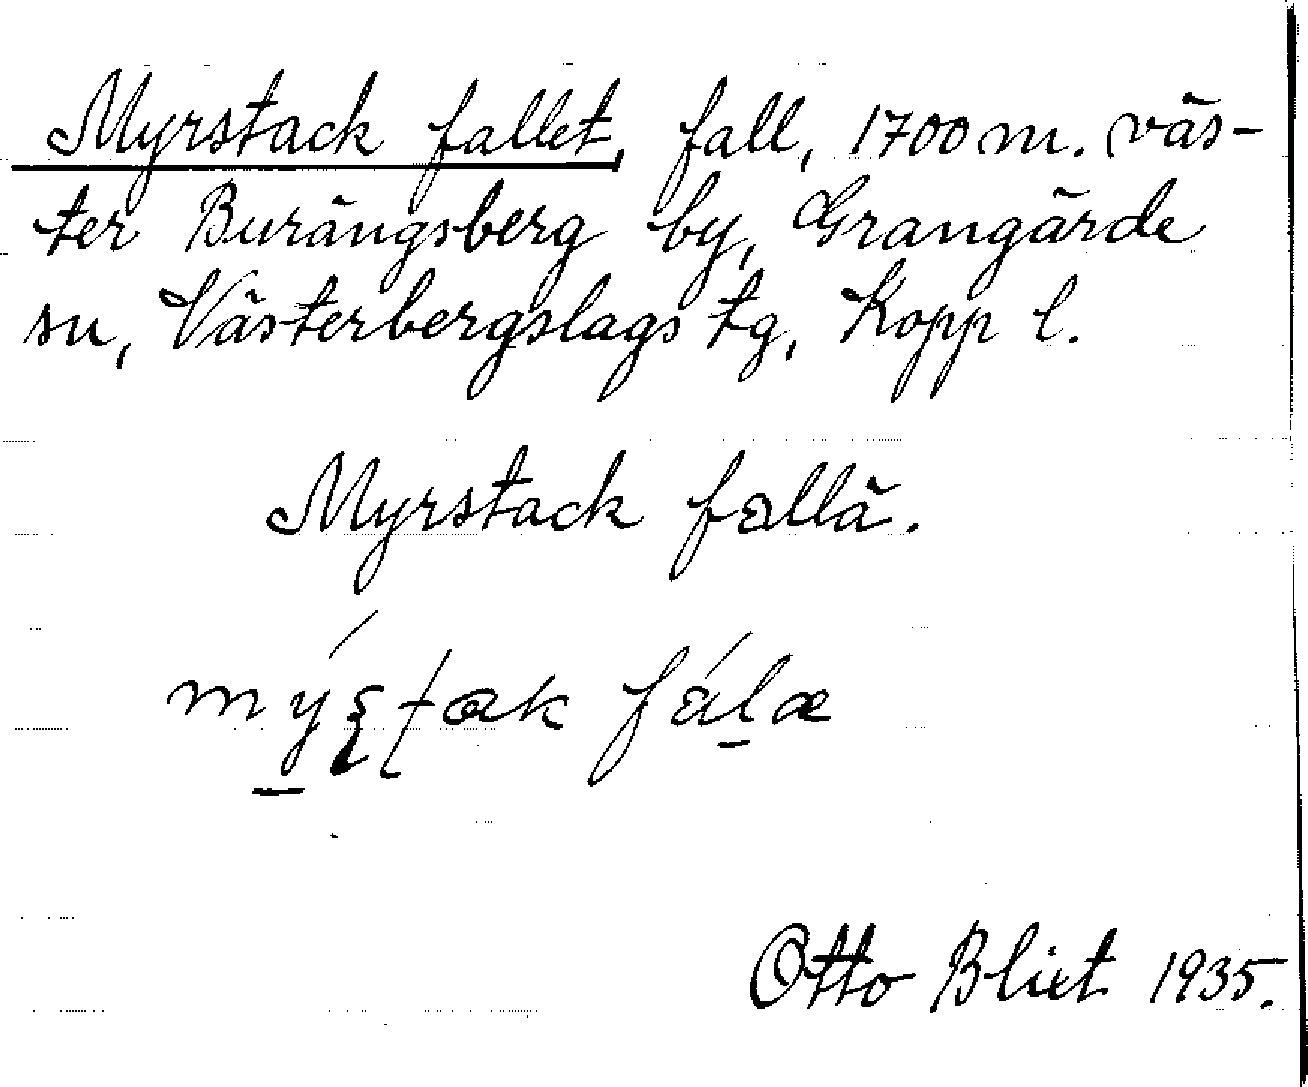 Myrstack fallet, fall, 1700 m. väs-
ter Burängsberg by, Grangärde
sn, Västerbergslags tg, Kopp l.
Myrstack fallä.
fálæ
Otto Blixt 1935.